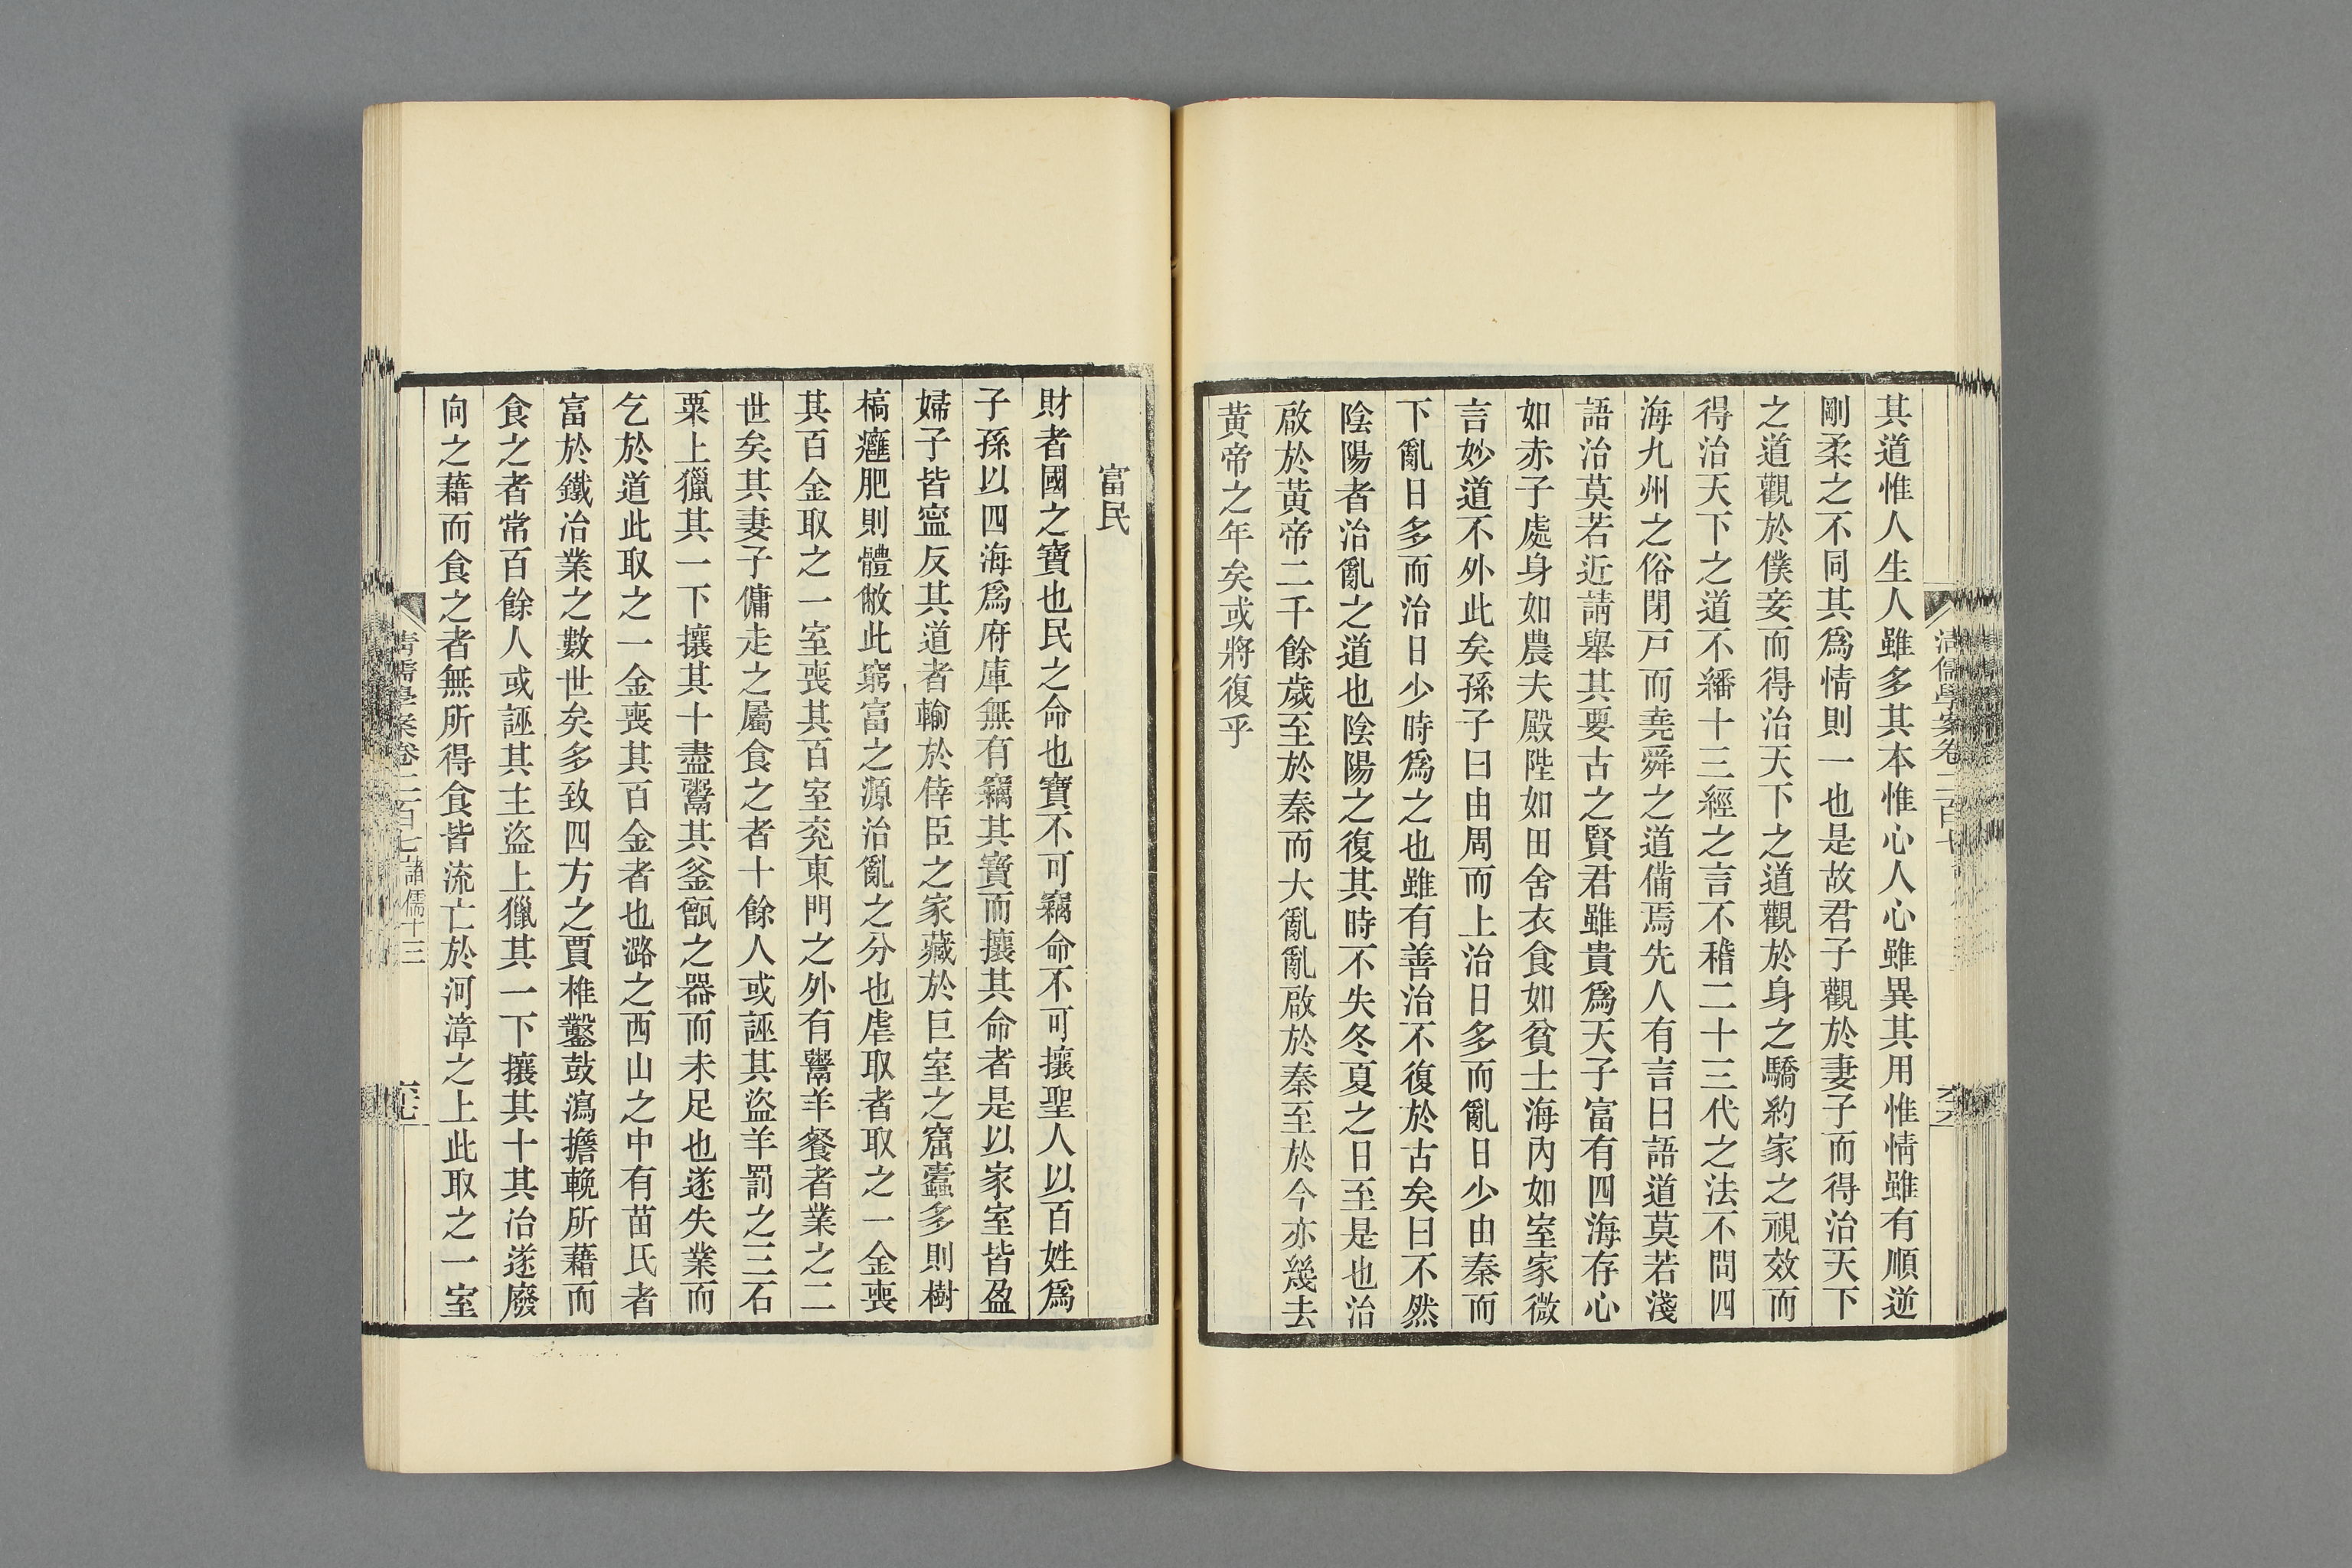 其道惟人生人雖多其本惟心人心雖異其用惟情雖有順逆
剛柔之不同其爲情則一也是故君子觀於妻子而得治天下
之道觀於僕妾而得治天下之道觀於身之驕約家之視效而
得治天下之道不繙十三經之言不稽二十三代之法不問四
海九州之俗閉戸而堯舜之道備焉先人有言曰語道莫若淺
語治莫若近請舉其要古之賢君雖貴爲天子富有四海存心
如赤子處身如農夫殿陛如田舍衣食如貧士海內如室家微
言妙道不外此矣孫子曰由周而上治日多而亂日少由秦而
下亂日多而治日少時爲之也雖有善治不復於古矣曰不然
陰陽者治亂之道也陰陽之復其時不失冬夏之日至是也治
啟於黃帝二千餘歲至於秦而大亂亂啟於秦至於今亦幾去
黃帝之年矣或將復乎
清儒學案卷二百七
六十六
富民
財者國之寶也民之命也寶不可竊命不可攘聖人以百姓爲
子孫以四海爲府庫無有竊其寶而攘其命者是以家室皆盈
婦子皆寍反其道者輸於倖臣之家藏於巨室之窟蠹多則樹
槁癰肥則體敝此窮富之源治亂之分也虐取者取之一金喪
其百金取之一室喪其百室兗東門之外有鬻羊餐者業之二
世矣其妻子傭走之屬食之者十餘人或誣其盜羊罰之三石
粟上獵其一下攘其十盡鬻其釜甑之器而未足也遂失業而
乞於道此取之一金喪其百金者也潞之西山之中有苗氏者
富於鐵冶業之數世矣多致四方之賈椎鑿鼓瀉擔輓所藉而
食之者常百餘人或誣其主盜上獵其一下攘其十其冶遂廢
向之藉而食之者無所得食皆流亡於河漳之上此取之一室
清儒學案卷二百七 諸儒十三
六十七